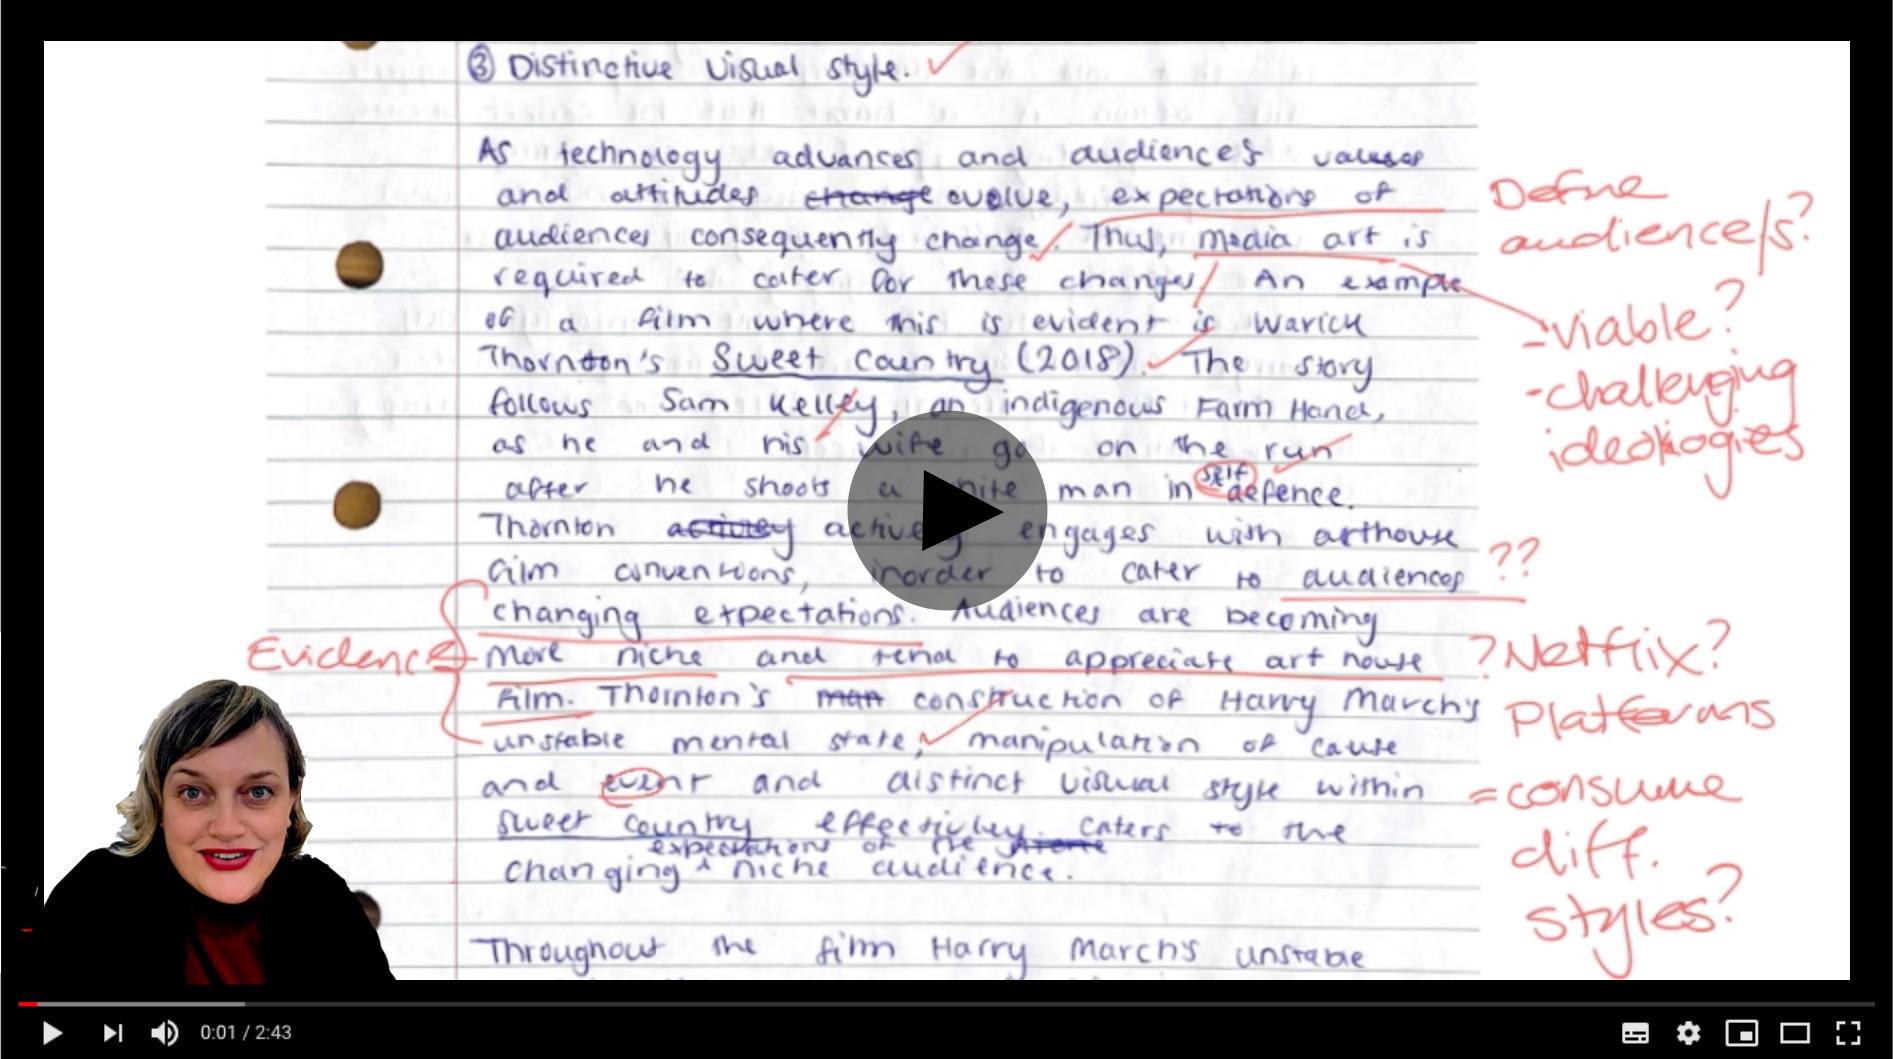 ③ Distinctive visual style.
As technology advances and audience's values
and attitudes change evolve, expectations of
audiences consequently change. Thus, media art is
required to cater for these changes. An example
of a film where this is evident is Warick
Thornton's Sweet Country (2018). The story
follows Sam Kelley, an indigenous Farm Hand,
as he and his wife go on the run
after he shoots a white man in self defence.
Thornton activey actively engages with arthouse
film conventions, inorder to cater to audiences
changing expectations. Audiences are becoming
more niche and tend to appreciate art house
film. Thornton's man construction of Harry March's
unstable mental state, manipulation of cause
and event and distinct visual style within
Sweet Country effectivley caters to the
expectations of the
changing ^ niche audience.
Throughout the film Harry March's unstable
Define
audience/s?
-viable?
-challenging
ideologies
??
Evidence
? Netflix?
Platforms
= consume
diff.
styles?
0:01 / 2:43